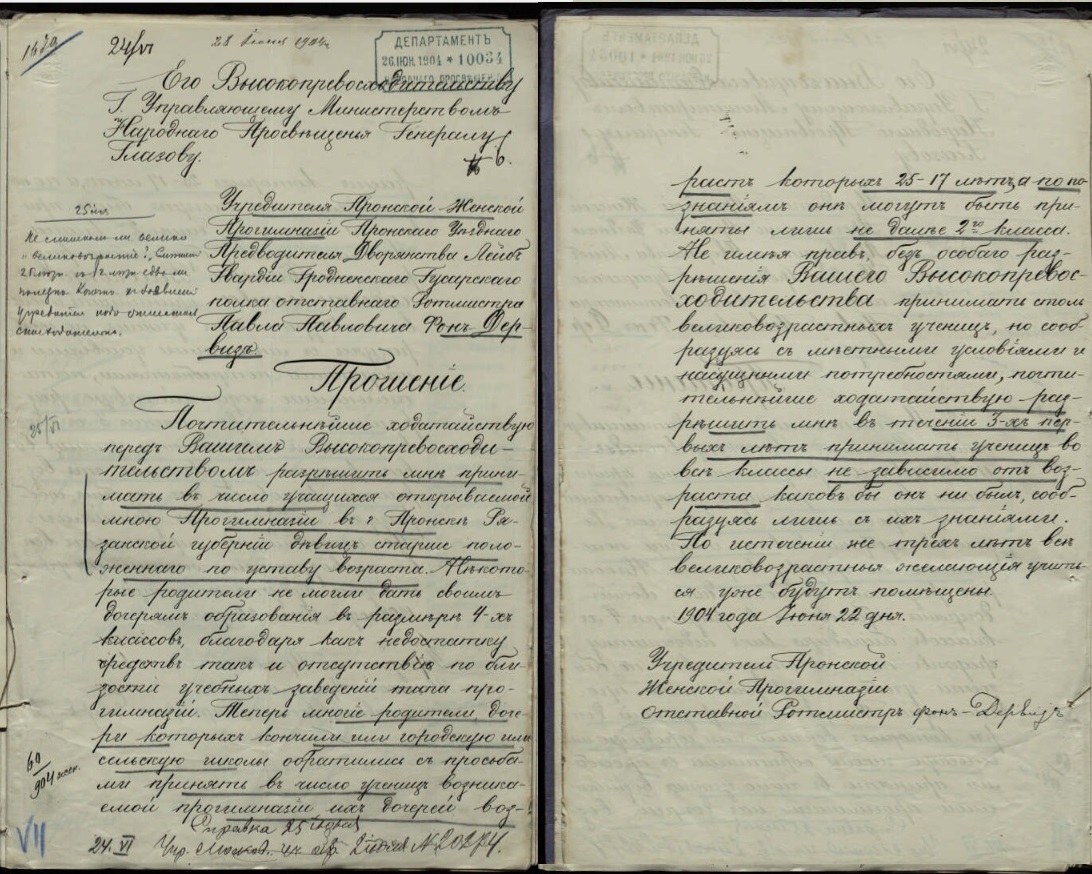 24/VI
28 Іюня 1904 г.
ДЕПАРТАМЕНТЪ
26.ІЮН.1904 * 10034
НАРОДНАГО ПРОСВѢЩЕНІЯ
Его Высокопревосходительству
Г. Управляющему Министерствомъ
Народнаго Просвѣщенія Генералу
Глазову.
Учредителя Пронской Женской
Прогимназіи Пронскаго Уѣзднаго
Предводителя Дворянства Лейбъ
Гвардіи Гродненскаго Гусарскаго
полка отставнаго Ротмистра
Павла Павловича Фонъ-Дер-
визъ.
Не слишкомъ ли велико
Прошеніе.
Почтительнѣйше ходатайствую
передъ Вашимъ Высокопревосходи-
тельствомъ разрѣшить мнѣ прини-
мать въ число учащихся открываемой
мною Прогимназіи въ г. Пронскѣ Ря-
занской губерніи дѣвицъ старше поло-
женнаго по уставу возраста. Нѣкото-
рые родители не могли дать своимъ
дочерямъ образованія въ размѣрѣ 4-хъ
классовъ, благодаря какъ недостатку
средствъ такъ и отсутствію по бли-
зости учебныхъ заведеній типа про-
гимназій. Теперь многіе родители, доче-
ри которыхъ кончили или городскую или
сельскую школы обратились съ просьба-
ми принять въ число ученицъ возника-
емой прогимназіи ихъ дочерей воз-
Справка 25 Іюня
24. VI
№ 20274.
VII
растъ которыхъ 25-17 лѣтъ, а по по-
знаніямъ онѣ могутъ быть при-
няты лишь не далѣе 2го класса.
Не имѣя правъ, безъ особаго раз-
рѣшенія Вашего Высокопревос-
ходительства принимать столь
великовозрастныхъ ученицъ, но сооб-
разуясь съ мѣстными условіями и
насущными потребностями, почти-
тельнѣйше ходатайствую раз-
рѣшить мнѣ въ теченіи 3-хъ пер-
выхъ лѣтъ принимать ученицъ во
всѣ классы не зависимо отъ воз-
раста каковъ бы онъ ни былъ, сооб-
разуясь лишь съ ихъ знаніями.
По истеченіи же трехъ лѣтъ всѣ
великовозрастныя желающія учить-
ся уже будутъ помѣщены.
1904 года Іюня 22 дня.
Учредитель Пронской
Женской Прогимназіи
отставной Ротмистръ фонъ-Дервизъ